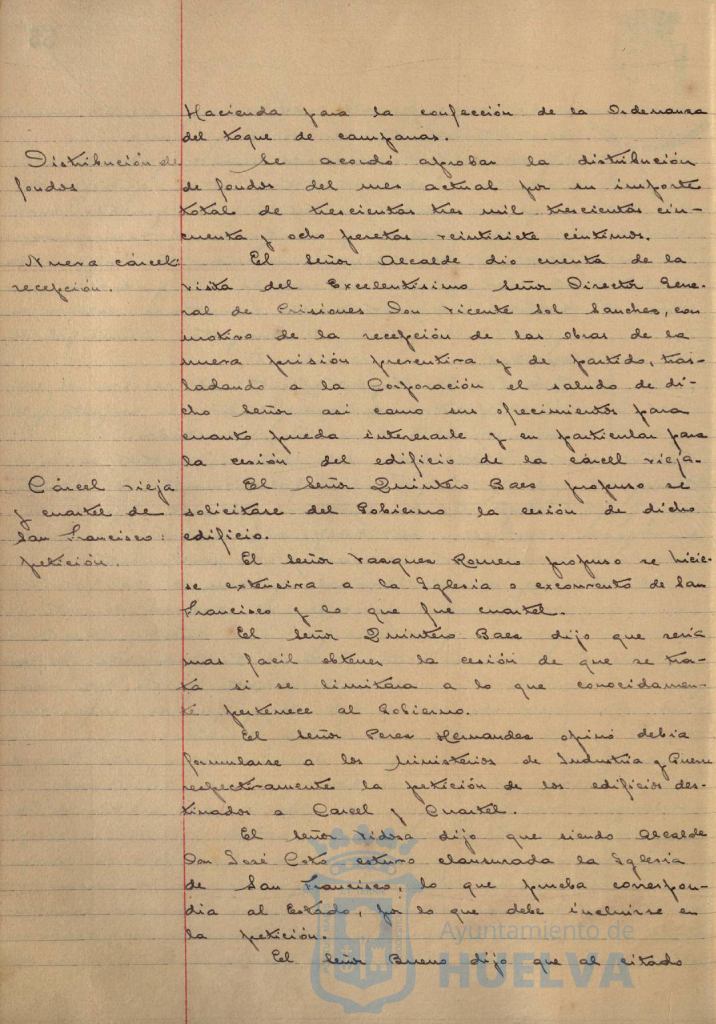 Hacienda para la confección de la Ordenanza
del toque de campanas.
Distribución de
fondos
Se acordó aprobar la distribución
de fondos del mes actual por su importe
total de trescientas tres mil trescientas cin-
cuenta y ocho pesetas veintisiete céntimos.
Nueva cárcel:
recepción.
El Señor Alcalde dio cuenta de la
visita del Excelentísimo Señor Director Gene-
ral de Prisiones Don Vicente Sol Sanchez, con
motivo de la recepción de las obras de la
nueva prisión preventiva y de partido, tras-
ladando a la Corporación el saludo de di-
cho Señor asi como sus ofrecimientos para
cuanto pueda interesarle y en particular para
la cesión del edificio de la cárcel vieja.
Cárcel vieja
y cuartel de
San Francisco:
petición.
El Señor Quintero Baez propuso se
solicitase del Gobierno la cesión de dicho
edificio.
El señor Vazquez Romero propuso se hicie-
se extensiva a la Iglesia o exconvento de San
Francisco y lo que fué cuartel.
El Señor Quintero Baez dijo que sería
mas facil obtener la cesión de que se tra-
ta si se limitara a lo que conocidamen-
te pertenece al Gobierno.
El Señor Perez Hernandez opinó debia
formularse a los Ministerios de Industria y Guerra
respectivamente la petición de los edificios des-
tinados a Carcel y Cuartel.
El señor Vidosa dijo que siendo Alcalde
Don José Coto estuvo clausurada la Iglesia
de San Francisco, lo que prueba correspon-
dia al Estado, por lo que debe incluirse en
la petición.
El Señor Bueno dijo que al citado
Ayuntamiento de
HUELVA